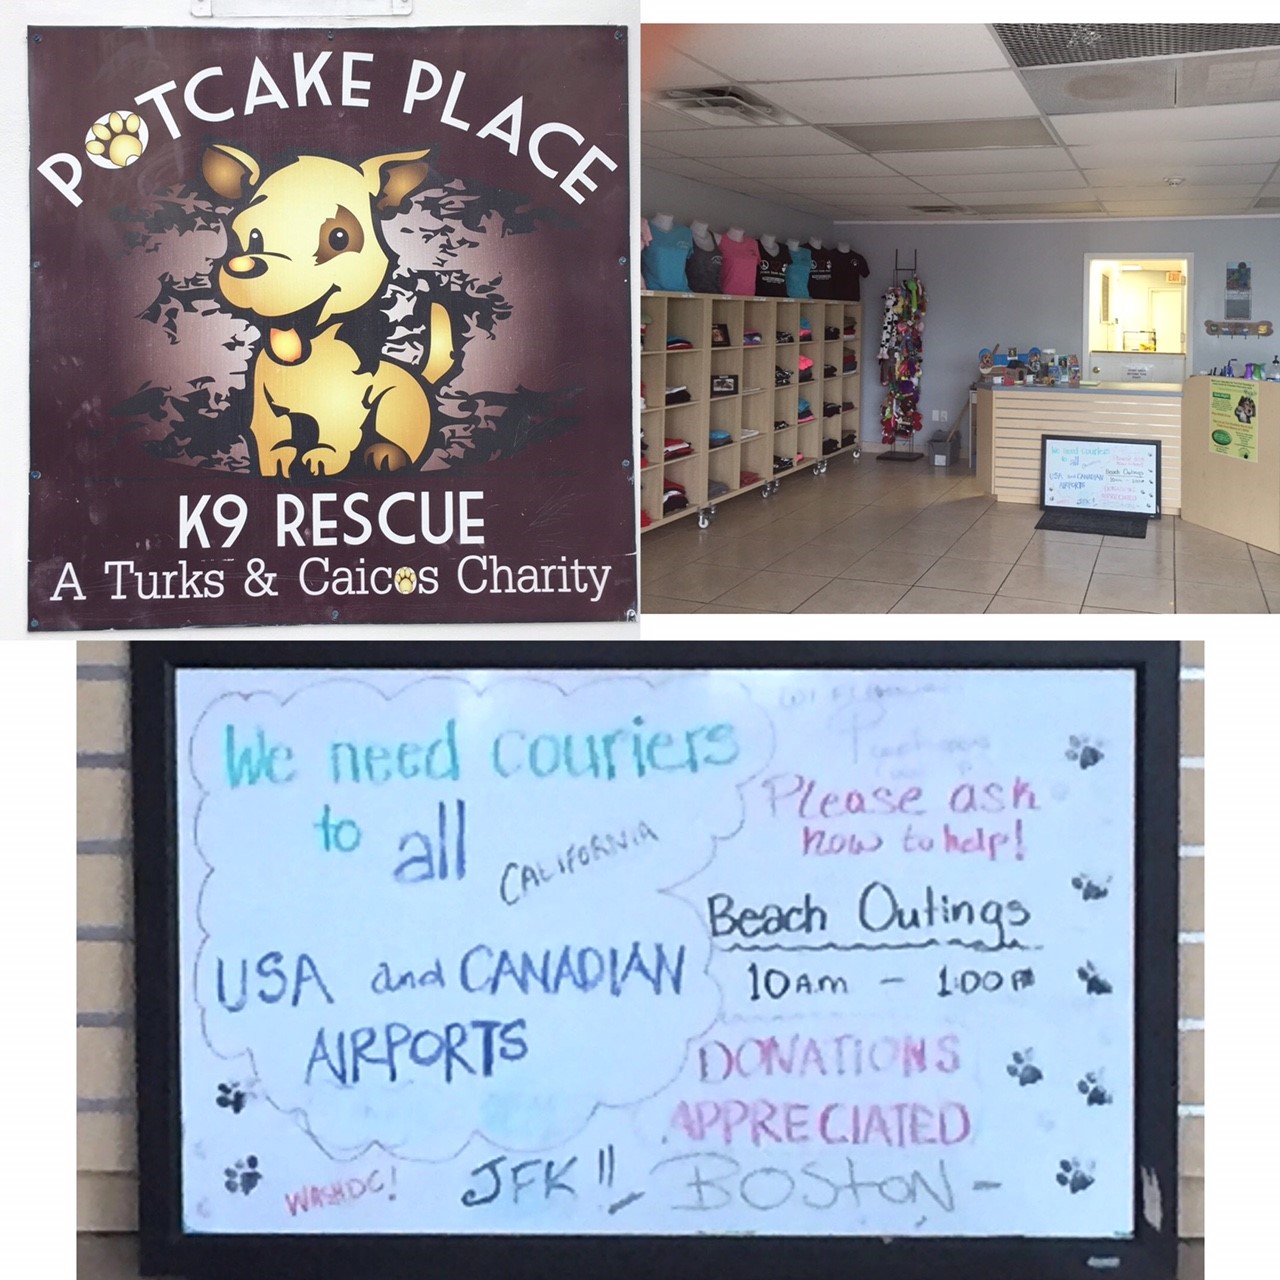 POTCAKE PLACE
K9 RESCUE
A Turks & Caicos Charity
EXIT
We need couriers
to all
CALIFORNIA
USA and CANADIAN
AIRPORTS
Please ask
how to help!
Beach Outings
10 A.m - 1:00 P
DONATIONS
APPRECIATED
WASHDC!
JFK!! BOSTON-